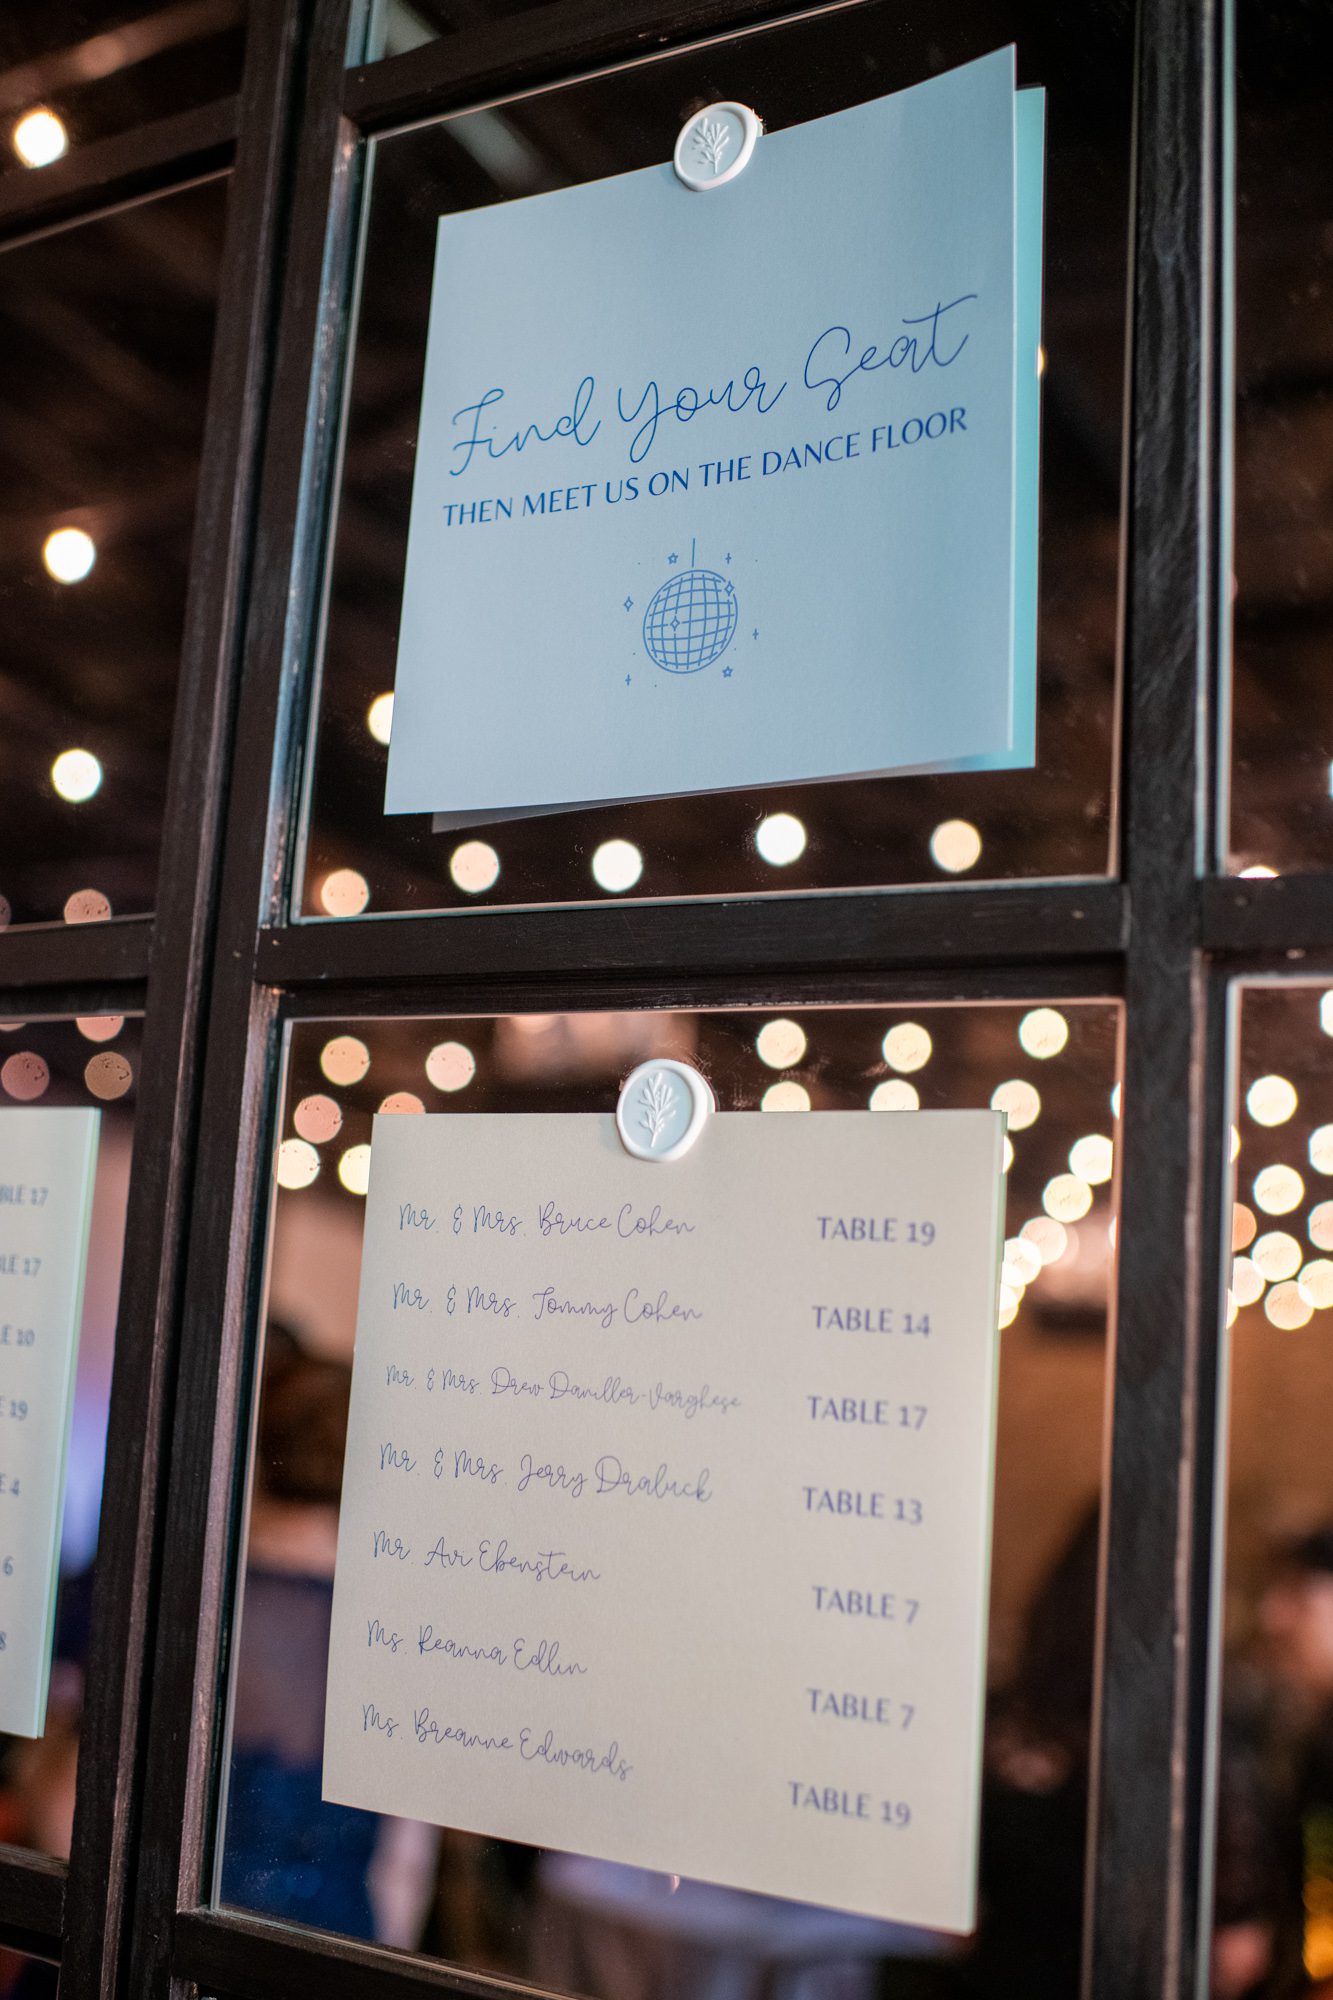 Find Your Seat
THEN MEET US ON THE DANCE FLOOR
Mr. & Mrs. Bruce Cohen TABLE 19
Mr. & Mrs. Tommy Cohen TABLE 14
Mr. & Mrs. Drew Damller-Varghese TABLE 17
Mr. & Mrs. Jerry Draluck TABLE 13
Mr. Avi Ebenstein TABLE 7
Ms. Reanna Edlin TABLE 7
Ms. Breanne Edwards TABLE 19
BLE 17
LE 17
E 10
E 19
E 4
6
8